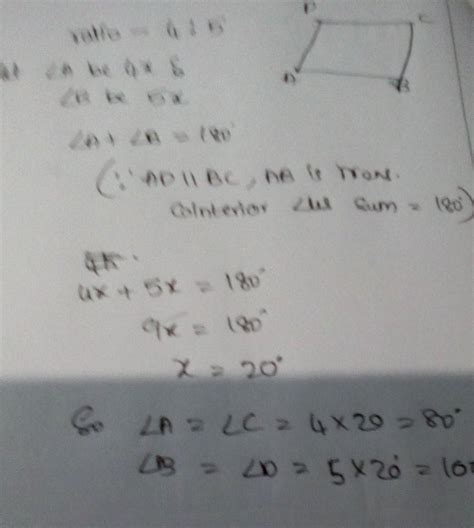 ratio = 4 : 5
∠A be 4x &
∠B be 5x
D
C
A
B
∠A + ∠B = 180°
(∵ AD || BC, AB is Trans.
Cointerior ∠les Sum = 180°)
4x + 5x = 180°
9x = 180°
x = 20°
So ∠A = ∠C = 4 × 20 = 80°
∠B = ∠D = 5 × 20° = 10